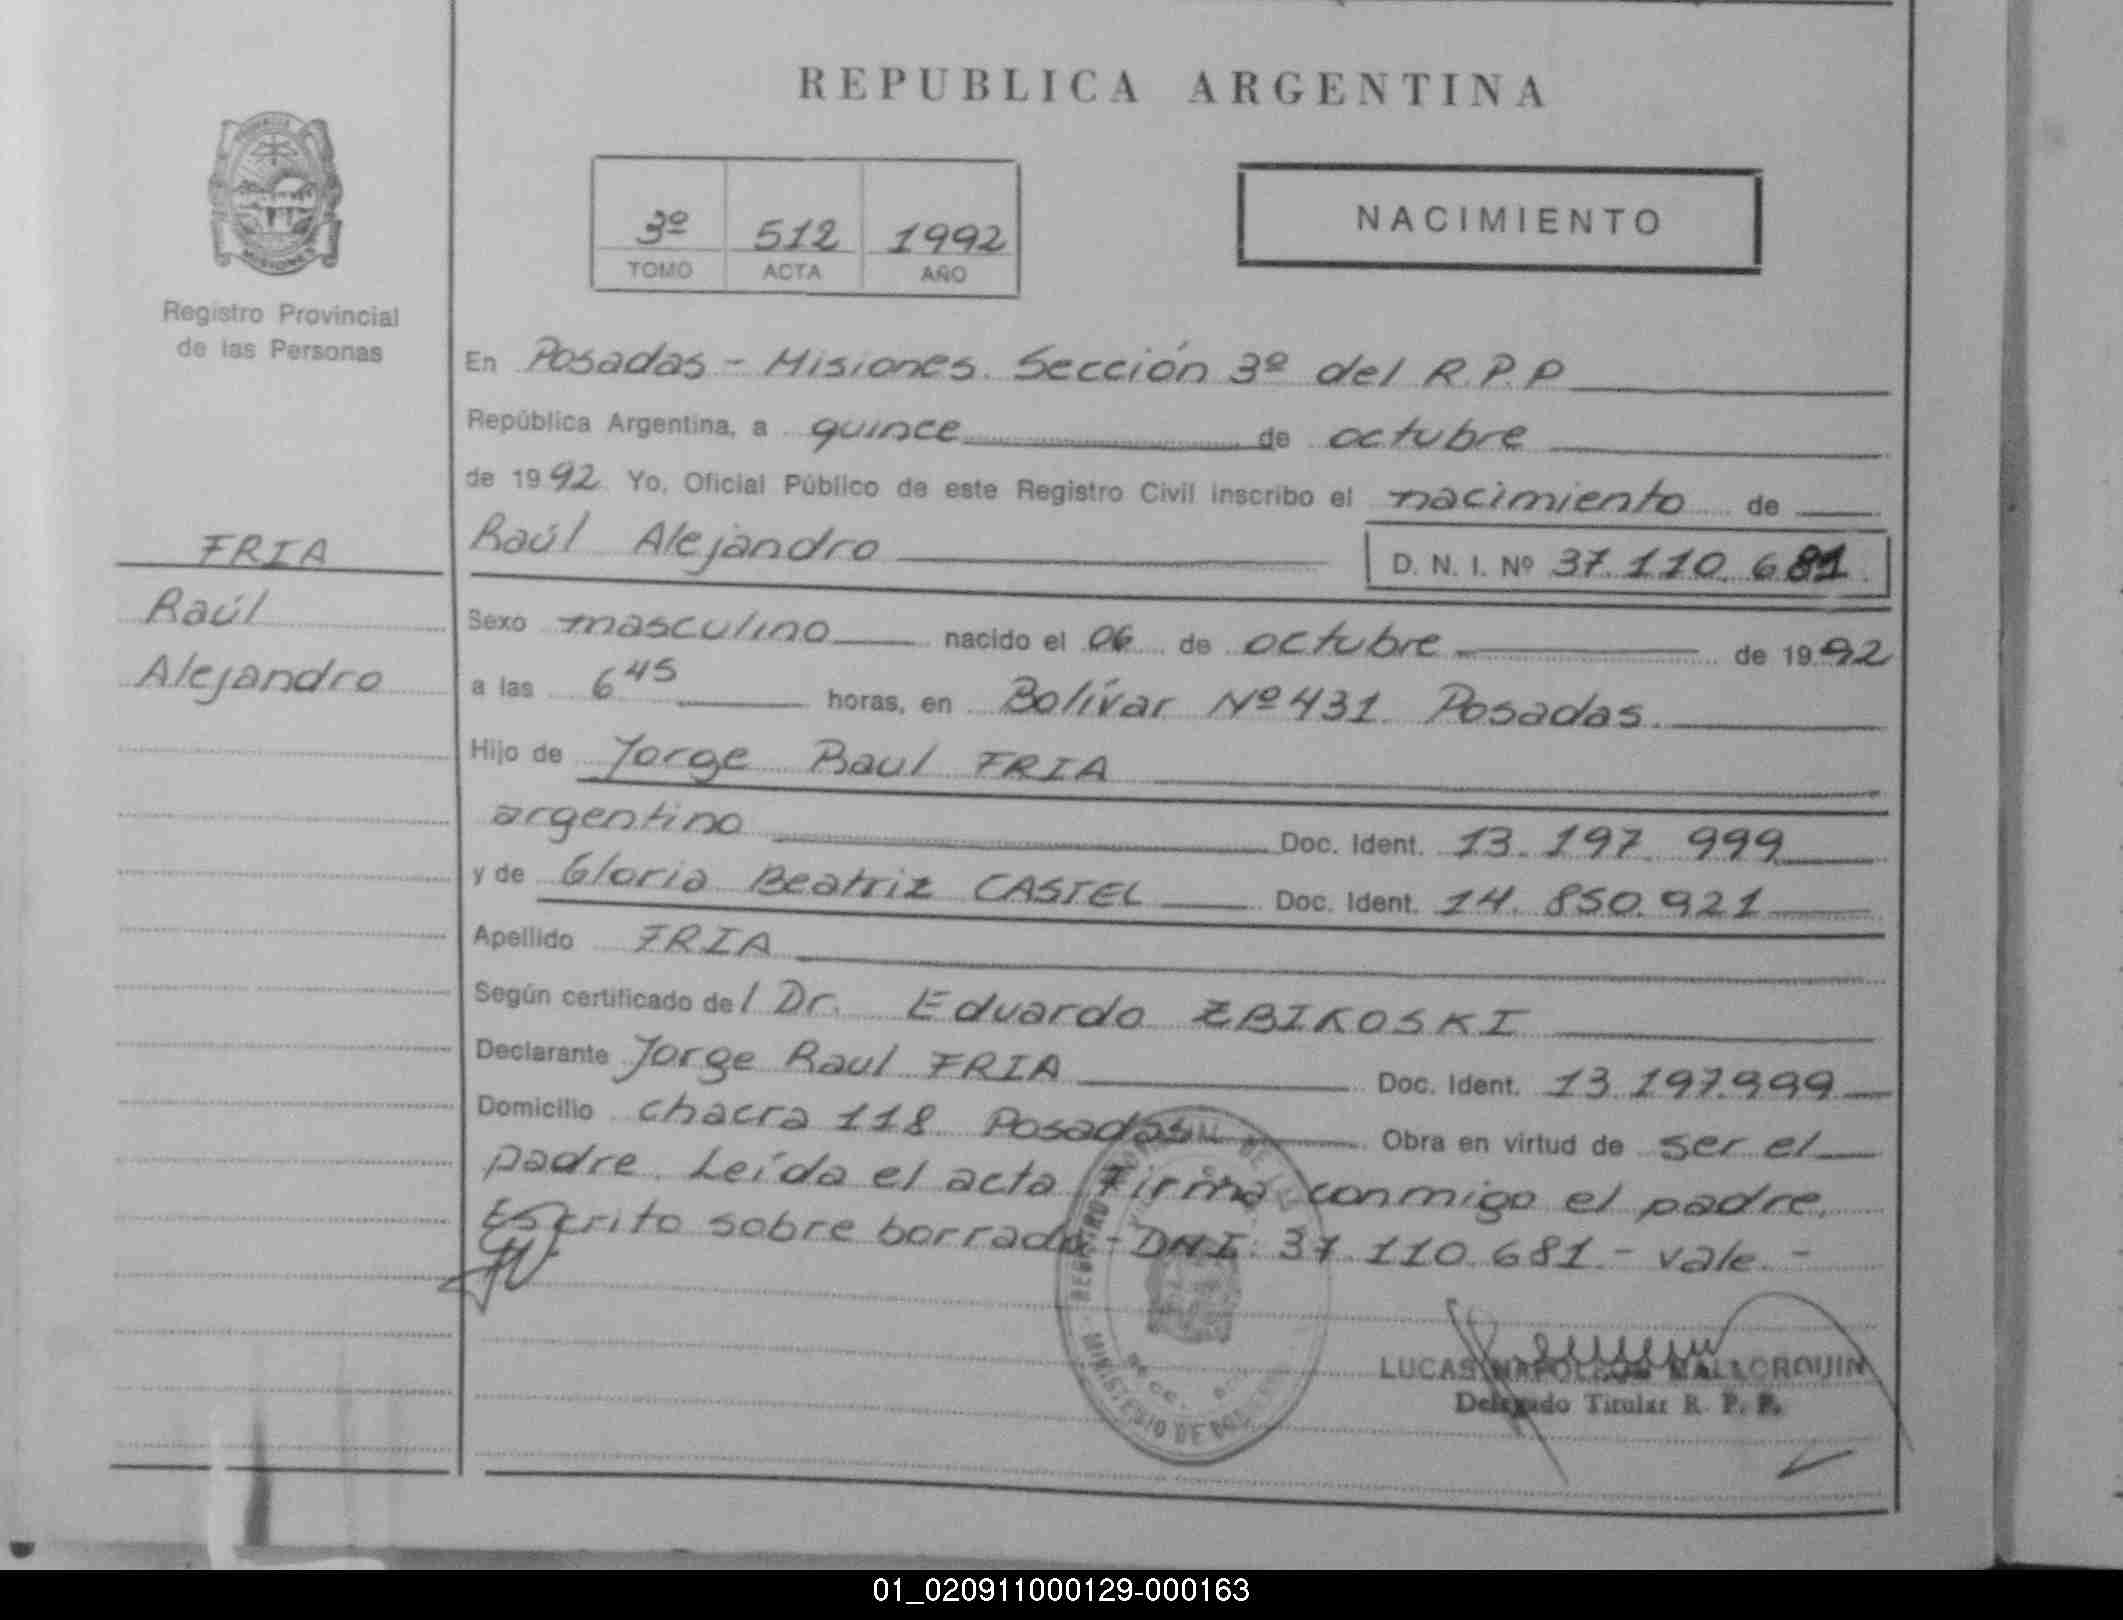 REPUBLICA ARGENTINA
PROVINCIA
MISIONES
Registro Provincial
de las Personas
3º 512 1992
TOMO ACTA AÑO
NACIMIENTO
En Posadas - Misiones. Sección 3º del R.P.P
República Argentina, a quince de octubre
de 1992 Yo, Oficial Público de este Registro Civil inscribo el nacimiento de
FRIA
Raúl
Alejandro
Raúl Alejandro D. N. I. Nº 37.110.681
Sexo masculino nacido el 06 de octubre de 1992
a las 6 45 horas, en Bolívar Nº 431. Posadas.
Hijo de Jorge Raul FRIA
argentino Doc. Ident. 13.197.999
y de Gloria Beatriz CASTEL Doc. Ident. 14.850.921
Apellido FRIA
Según certificado del Dr. Eduardo ZBIKOSKI
Declarante Jorge Raul FRIA Doc. Ident. 13.197.999
Domicilio chacra 118 Posadas Obra en virtud de ser el
padre. Leída el acta firma conmigo el padre.
Escrito sobre borrado - DNI: 37.110.681 - vale. -
REGISTRO
MINISTERIO DE
LUCAS NAPOLEON MALLORQUIN
Delegado Titular R. P. P.
01_020911000129-000163